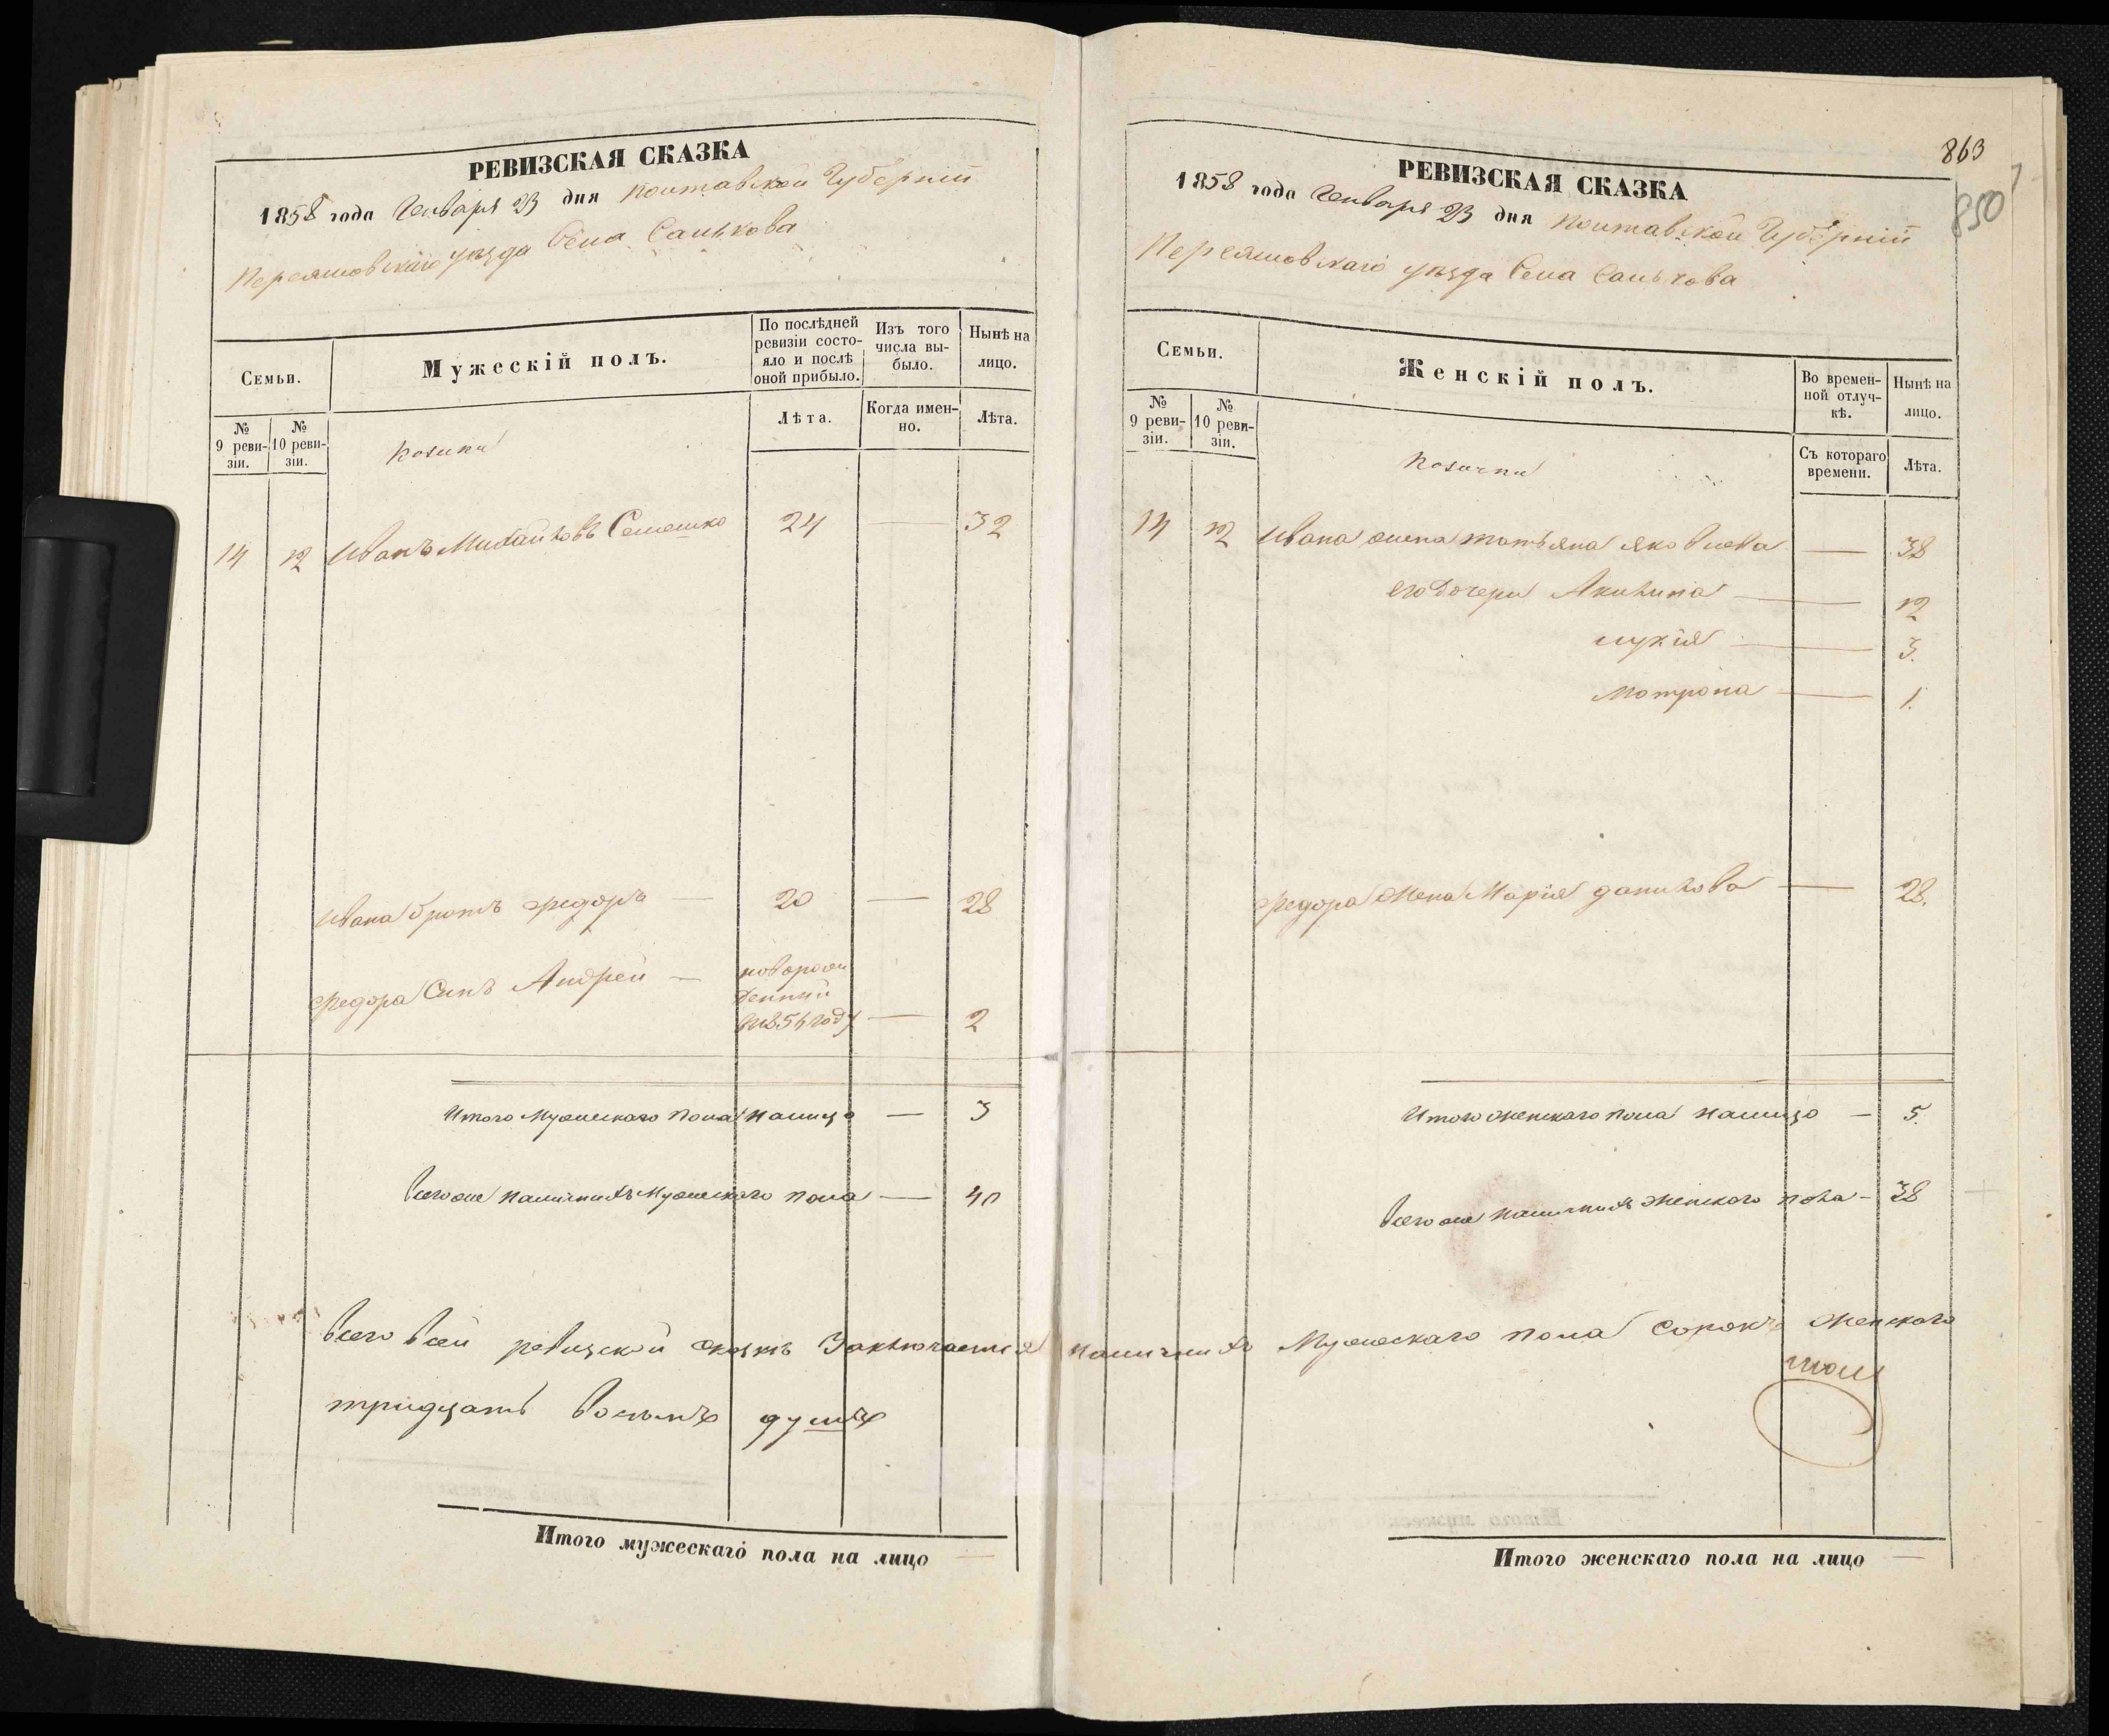 РЕВИЗСКАЯ СКАЗКА
1858 года Генваря 23 дня Полтавской Губерніи
Переяловскаго уезда Села Салькова
Семьи.
Мужескій полъ.
По послѣдней ревизіи состояло и послѣ оной прибыло.
Изъ того числа выбыло.
Нынѣ на лицо.
№ 9 ревизіи.
№ 10 ревизіи.
Козаки
Лѣта.
Когда именно.
Лѣта.
14 12 Иванъ Михайловъ Семешко 24 — 32
Ивана братъ Федоръ — 20 — 28
Федора Синъ Андрей — новорожденний в 1856 году — 2
Итого Мужескаго пола налицо — 3
Всего же наличнихъ Мужескаго пола — 40
Всего в сей ревизской сказкъ Заключается наличнихъ Мужескаго пола сорокъ Женскаго
тридцать восемъ душъ
Итого мужескаго пола на лицо —
863
850
РЕВИЗСКАЯ СКАЗКА
1858 года Генваря 23 дня Полтавской Губерніи
Переяловскаго уезда Села Салькова
Семьи.
Женскій полъ.
Во временной отлучкѣ.
Нынѣ на лицо.
№ 9 ревизіи.
№ 10 ревизіи.
Козачки
Съ котораго времени.
Лѣта.
14 12 Ивана жена Татьяна Яковлева — 38
его Дочери Акилина — 12
Лукія — 3.
Матрона — 1.
Федора Жена Марія Данилова — 28.
Итого женскаго пола налицо — 5.
Всего же наличнихъ Женскаго пола — 38
Итого женскаго пола на лицо —